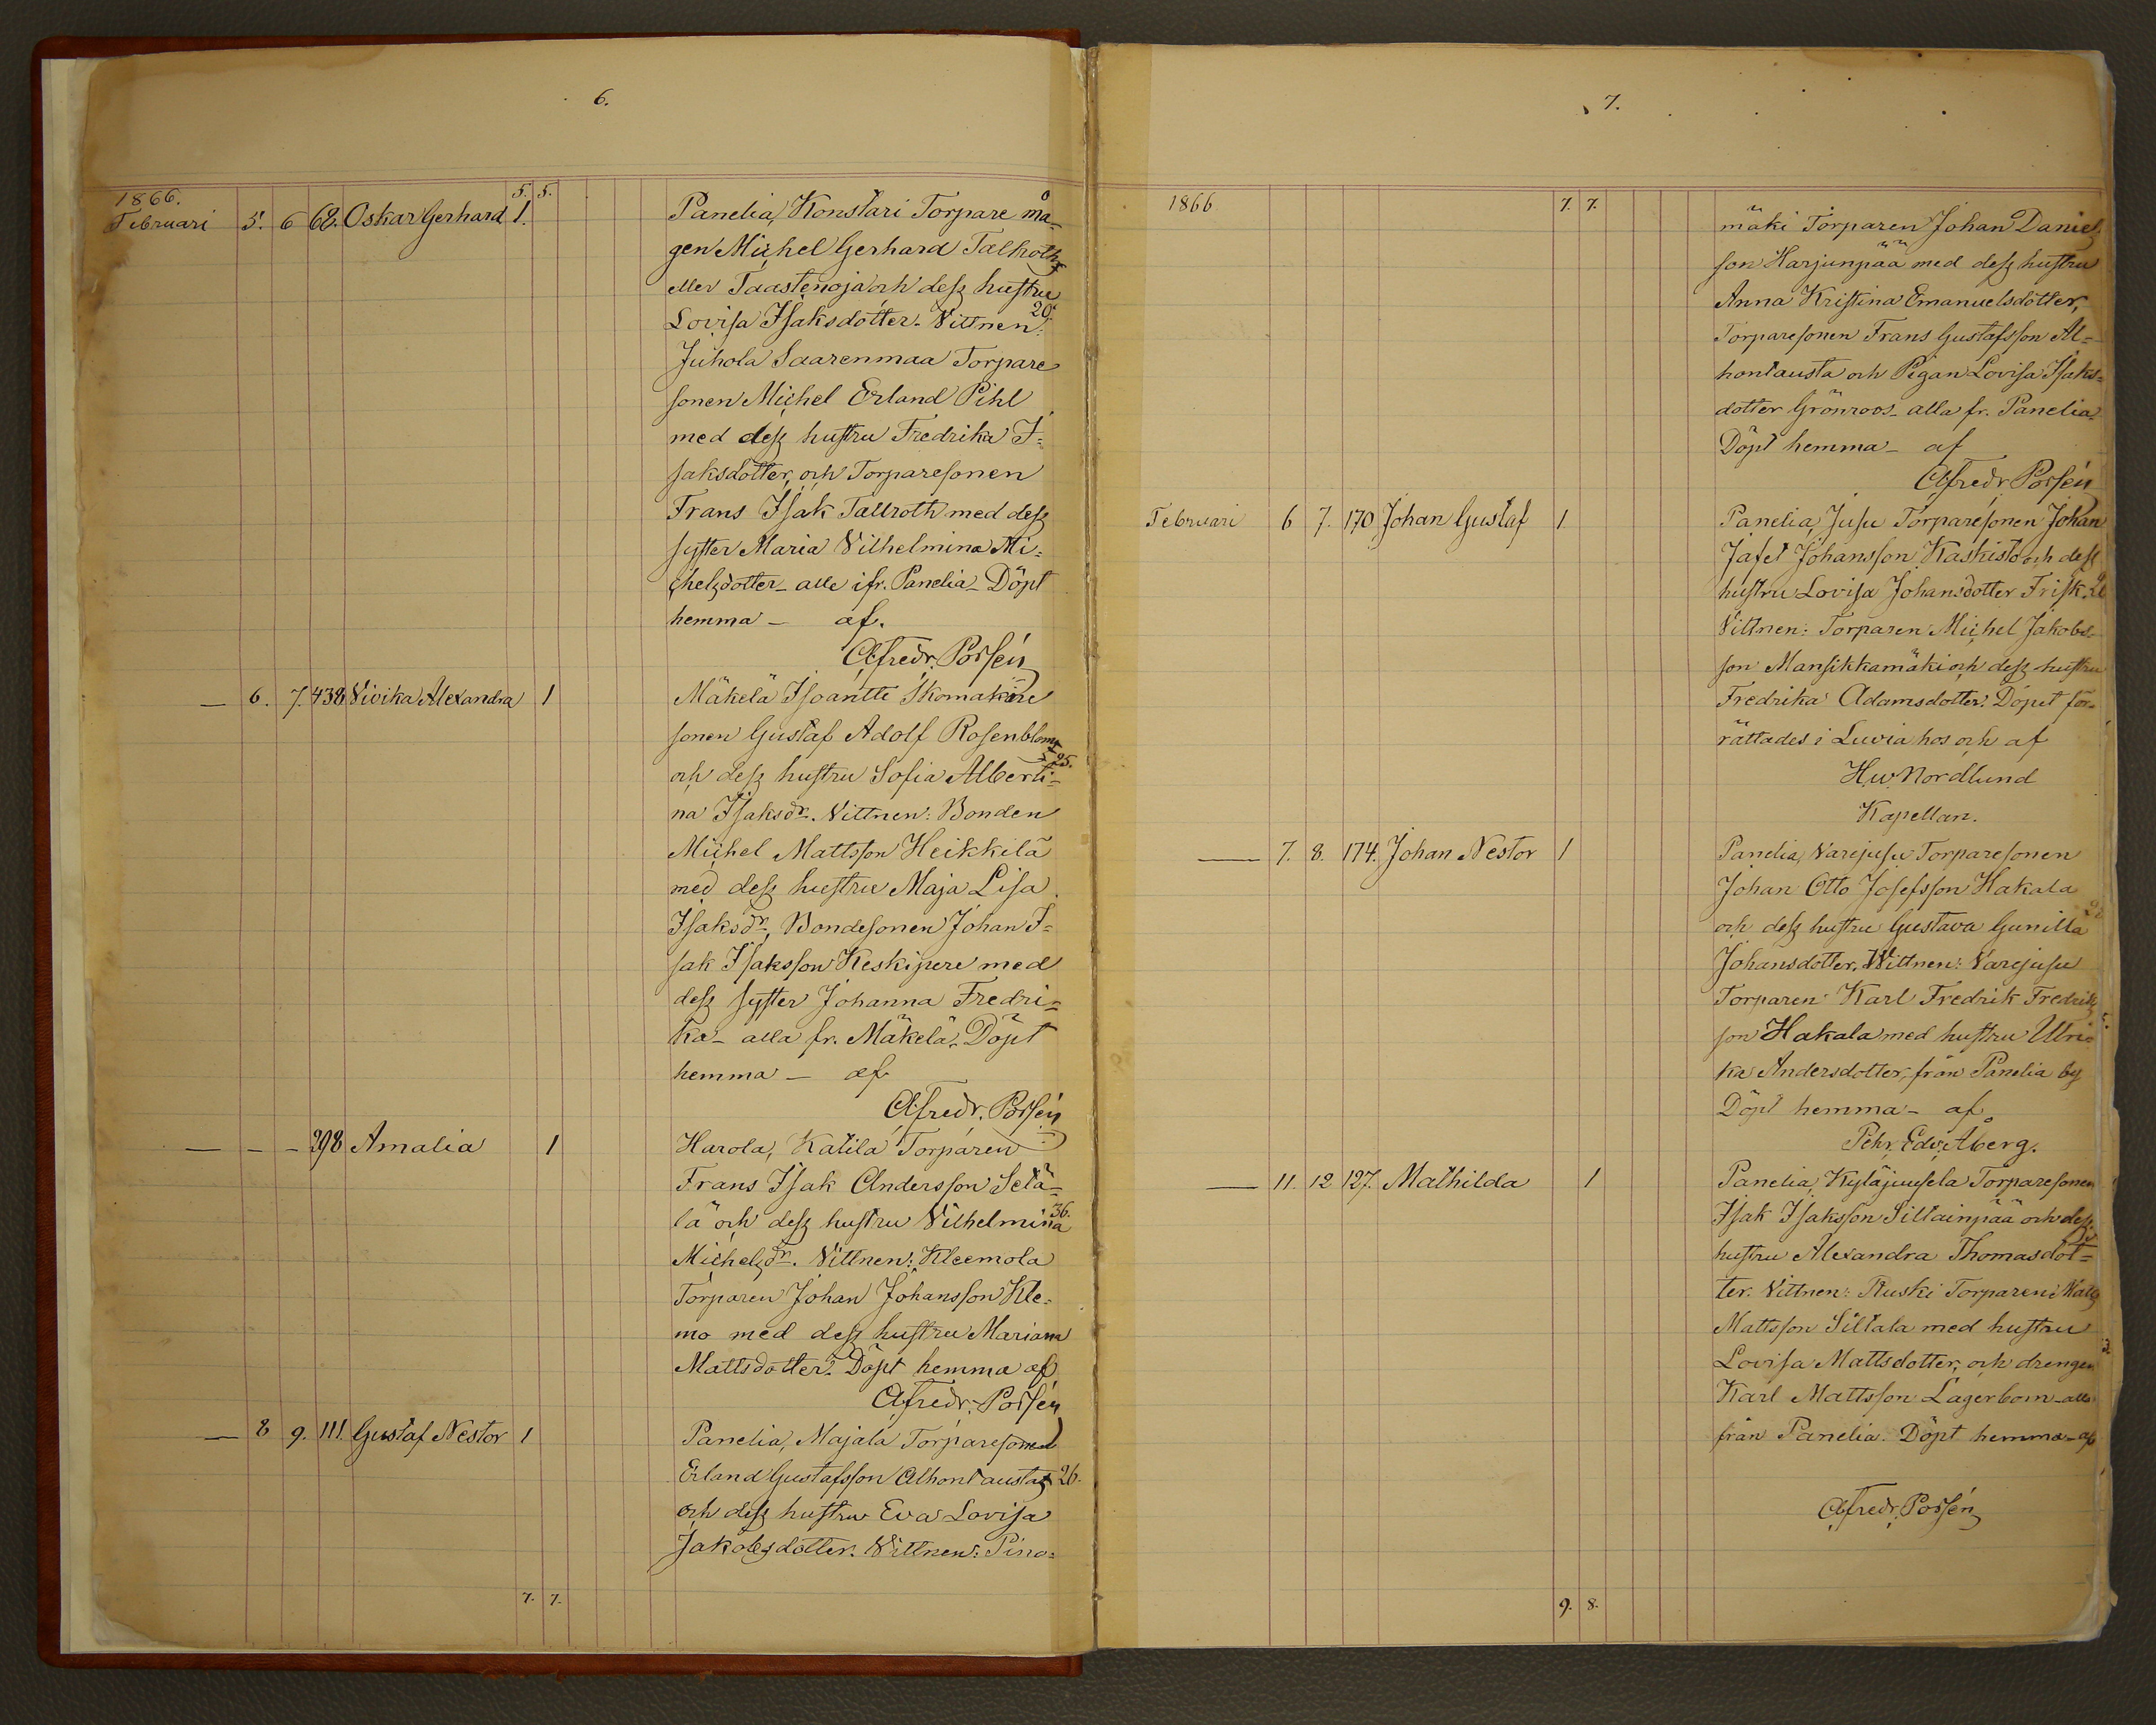 6.
5. 5.
1866.
Februari 5. 6 68. Oskar Gerhard 1. Panelia, Konstari Torpare må-
gen Michel Gerhard Tallroth
eller Taastenoja och dess hustru
20.
Lovisa Isaksdotter. Vittnen:
Juhola Saarenmaa Torpare
sonen Michel Erland Pihl
med dess hustru Fredrika I=
saksdotter, och Torparesonen
Frans Isak Tallroth med dess
syster Maria Vilhelmina Mi=
chelsdotter - alle ifr. Panelia - Döpt
hemma - af.
Alfredr. Porsén
— 6. 7. 438 Vivika Alexandra 1 Mäkelä Isoantti Skomakare
sonen Gustaf Adolf Rosenblom
25.
och dess hustru Sofia Alberti=
na Isaksdr. Vittnen: Bonden
Michel Mattsson Heikkilä
med dess hustru Maja Lisa
Isaksdr, Bondesonen Johan I=
sak Isaksson Keskipere med
dess syster Johanna Fredri=
ka - alla fr. Mäkelä. Döpt
hemma - af
Alfredr. Porsén
— - - 298 Amalia 1 Harola, Katila Torparen
Frans Isak Andersson Setä=
36.
lä och dess hustru Vilhelmina
Michelsdr. Vittnen: Kleemola
Torparen Johan Johansson Kle=
mo med dess hustru Mariana
Mattsdotter. Döpt hemma af
Alfredr. Porsén
— 8 9. 111. Gustaf Nestor 1 Panelia, Majala Torparesonen
Erland Gustafsson Alhontausta 26.
och dess hustru Eva Lovisa
Jakobsdotter. Vittnen: Pino=
7. 7.
7.
1866 7. 7.
mäki Torparen Johan Daniels
son Harjunpää med dess hustru
Anna Kristina Emanuelsdotter,
Torparesonen Frans Gustafsson Al=
hontausta och Pigan Lovisa Isaks=
dotter Grönroos - alla fr. Panelia.
Döpt hemma - af
Alfredr Porsén
Februari 6 7. 170 Johan Gustaf 1 Panelia, Jusu Torparesonen Johan
Jafet Johansson Kaskisto och dess
hustru Lovisa Johansdotter Frisk.
Vittnen: Torparen Michel Jakobs-
son Mansikkamäki och dess hustru
Fredrika Adamsdotter. Döpet för=
rättades i Luvia hos och af
H.W. Nordlund
Kapellan.
— 7. 8. 174. Johan Nestor 1 Panelia, Varejusu Torparesonen
Johan Otto Josefsson Hakala
och dess hustru Gustava Gunilla
Johansdotter. Vittnen: Varejusu
Torparen Karl Fredrik Fredriks
son Hakala med hustru Ulri=
ka Andersdotter, från Panelia by
Döpt hemma - af
Pehr. Edv. Åberg.
— 11. 12 127. Mathilda 1 Panelia, Kyläjuusela Torparesonen
Isak Isaksson Sillainpää och dess
hustru Alexandra Thomasdot=
ter. Vittnen: Ruski Torparen
Mattsson Sillala med hustru
Lovisa Mattsdotter, och drengen
Karl Mattsson Lagerbom - alla
från Panelia. Döpt hemma - af
Alfredr. Porsén
9. 8.